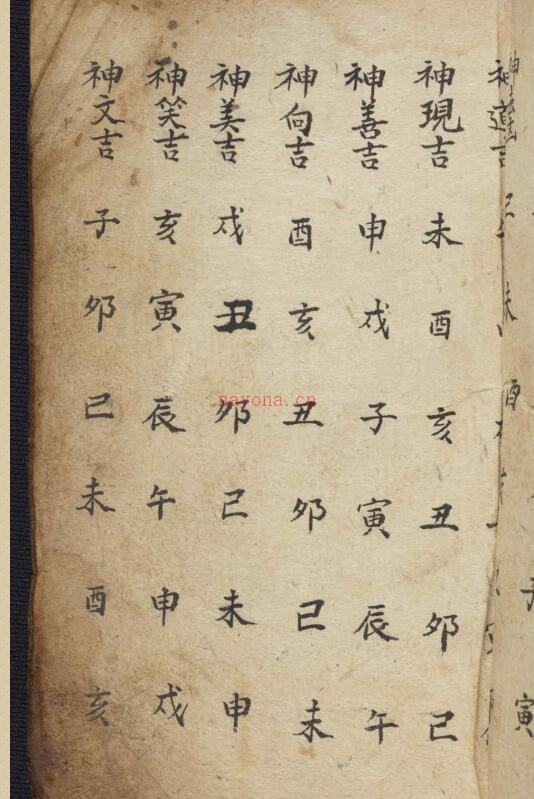 神現吉 未 酉 亥 丑 卯 巳
神善吉 申 戌 子 寅 辰 午
神向吉 酉 亥 丑 卯 巳 未
神美吉 戌 丑 卯 巳 未 申
神笑吉 亥 寅 辰 午 申 戌
神文吉 子 卯 巳 未 酉 亥
nayona.cn